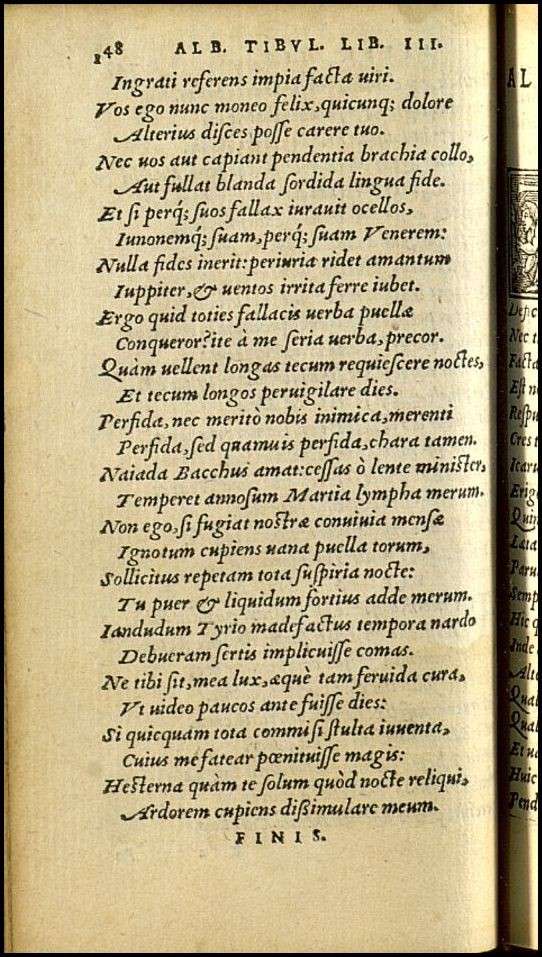 248 ALB. TIBVL. LIB. III.
Ingrati referens impia facta uiri.
Vos ego nunc moneo felix, quicunq; dolore
Alterius disces posse carere tuo.
Nec uos aut capiant pendentia brachia collo,
Aut fallat blanda sordida lingua fide.
Et si perq́; suos fallax iurauit ocellos,
Iunonemq́; suam, perq́; suam Venerem:
Nulla fides inerit: periuria ridet amantum
Iuppiter, & uentos irrita ferre iubet.
Ergo quid toties fallacis uerba puellæ
Conqueror? ite à me seria uerba, precor.
Quàm uellent longas tecum requiescere noctes,
Et tecum longos peruigilare dies.
Perfida, nec meritò nobis inimica, merenti
Perfida, sed quamuis perfida, chara tamen.
Naiada Bacchus amat: cessas ô lente minister,
Temperet annosum Martia lympha merum.
Non ego, si fugiat nostræ conuiuia mensæ
Ignotum cupiens uana puella torum,
Sollicitus repetam tota suspiria nocte:
Tu puer & liquidum fortius adde merum.
Iandudum Tyrio madefactus tempora nardo
Debueram sertis implicuisse comas.
Ne tibi sit, mea lux, æquè tam feruida cura,
Vt uideo paucos ante fuisse dies:
Si quicquam tota commisi stulta iuuenta,
Cuius me fatear pœnituisse magis:
Hesterna quàm te solum quòd nocte reliqui,
Ardorem cupiens dissimulare meum.
FINIS.